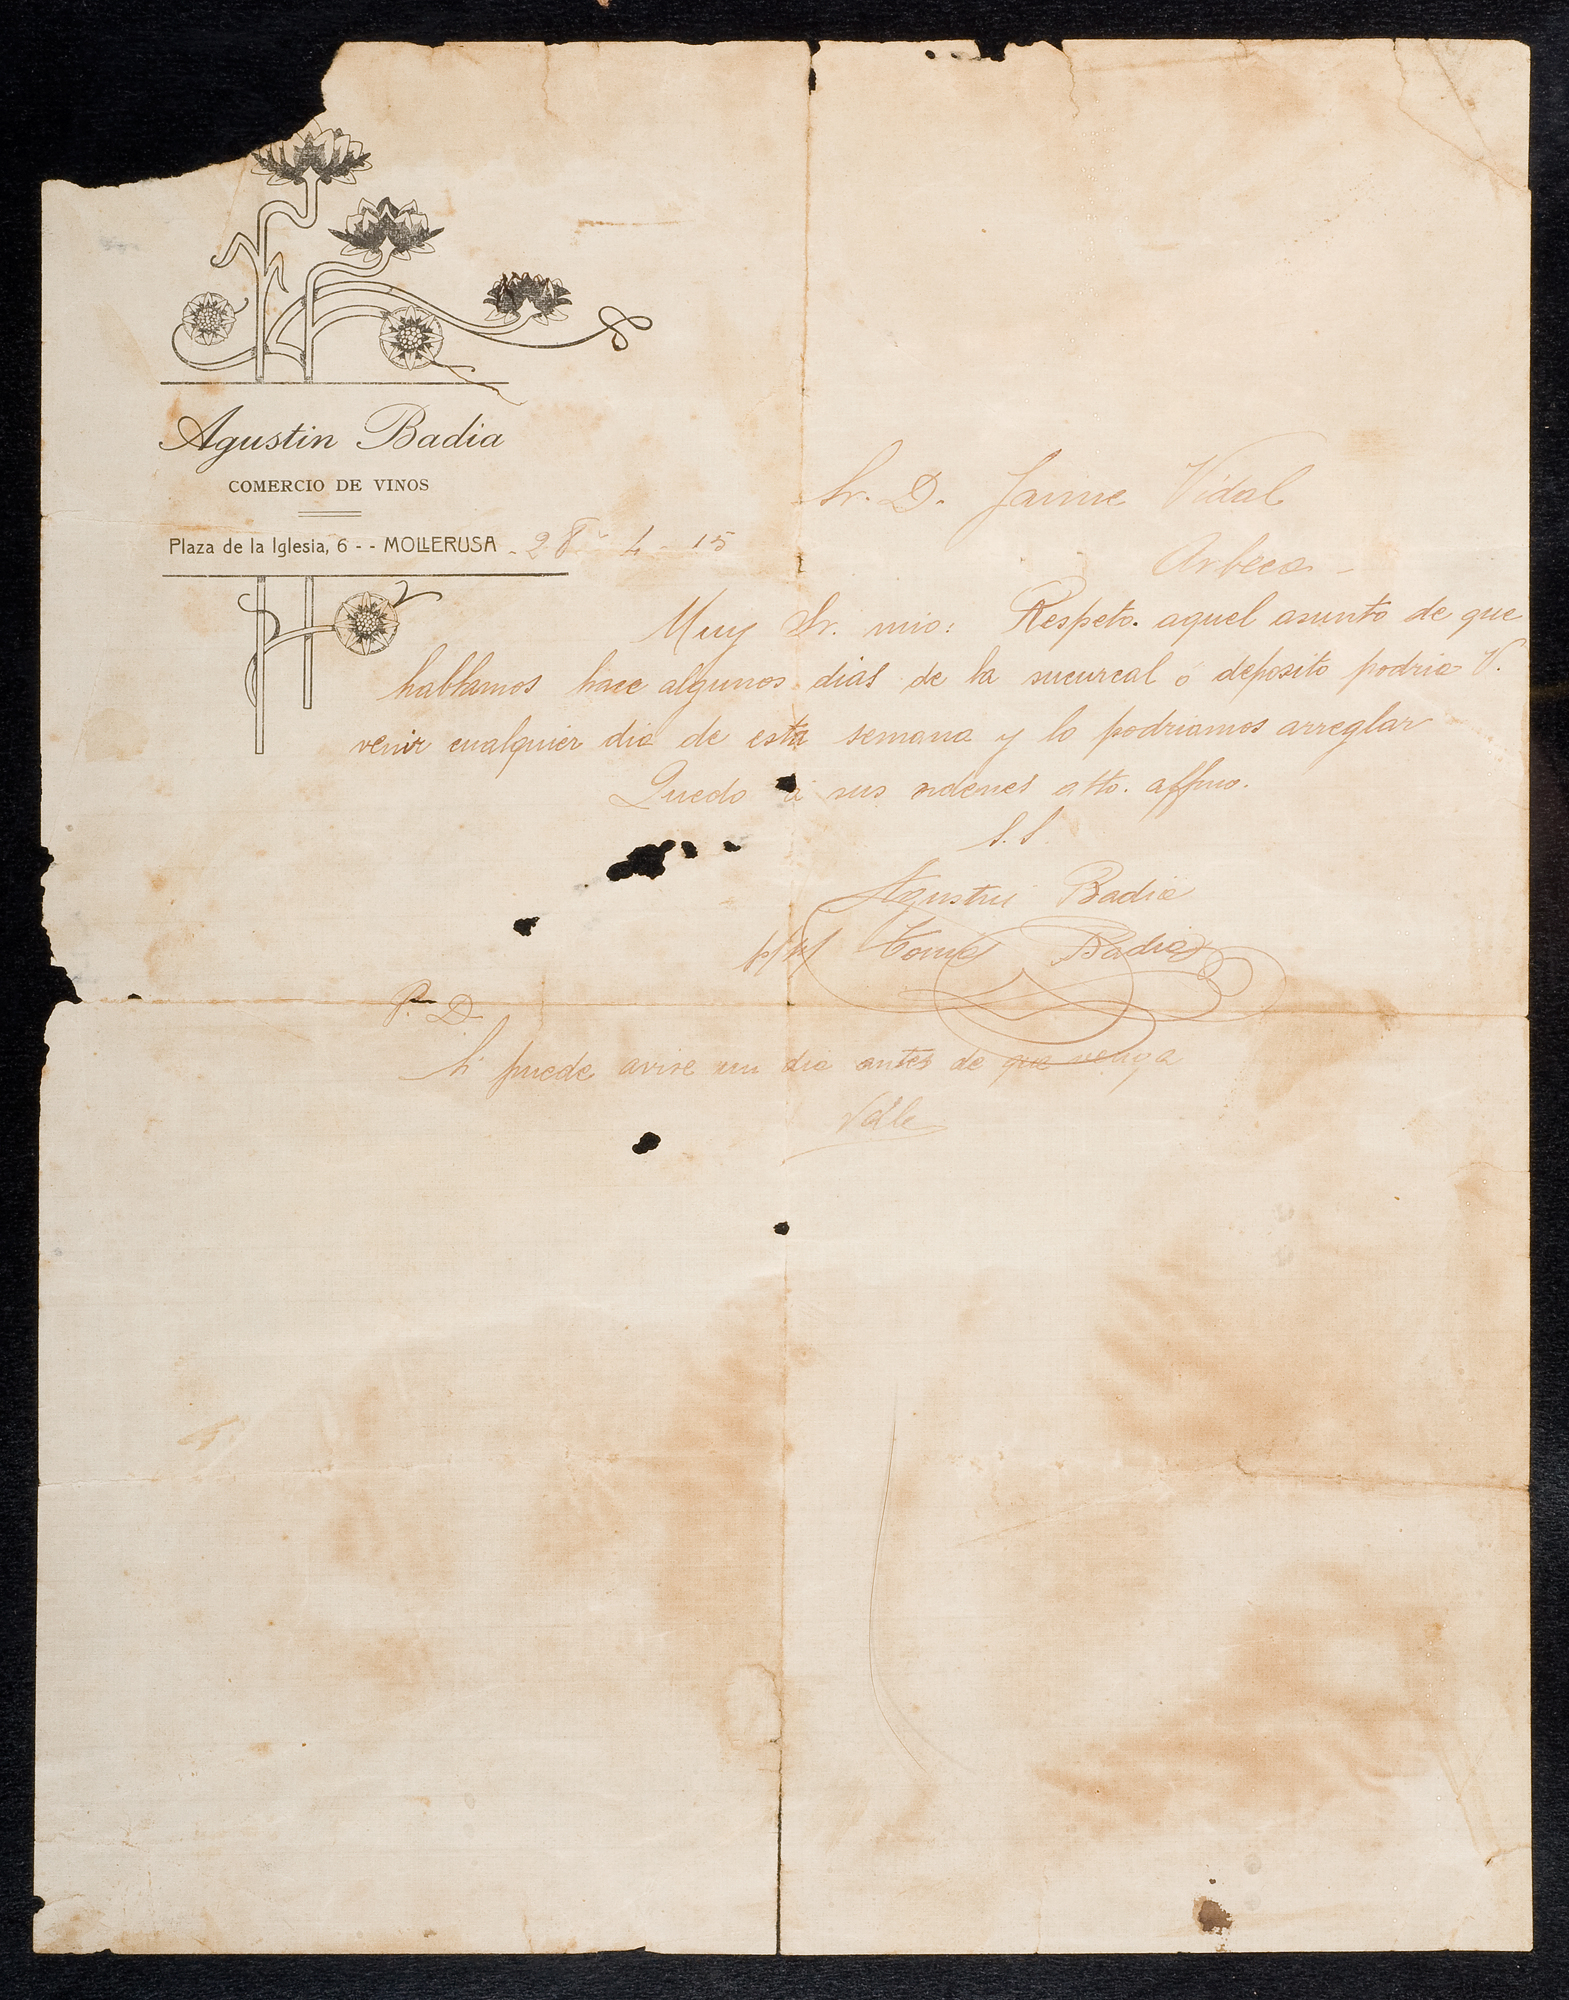 Agustin Badia
COMERCIO DE VINOS
Plaza de la Iglesia, 6 - - MOLLERUSA - 28 - 4 - 15
Sr. D. Jaime Vidal
Arbeca -
Muy Sr. mio: Respeto. aquel asunto de que
hablamos hace algunos dias de la sucursal o deposito podria V.
venir cualquier dia de esta semana y lo podriamos arreglar
Quedo a sus ordenes atto. affmo.
S. S.
Agustin Badia
Badia
P. D.
Si puede avise un dia antes de que venga